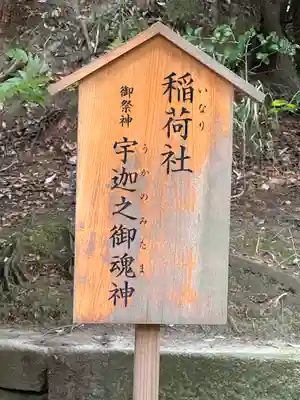 稲荷社
いなり
御祭神 宇迦之御魂神
うかのみたま